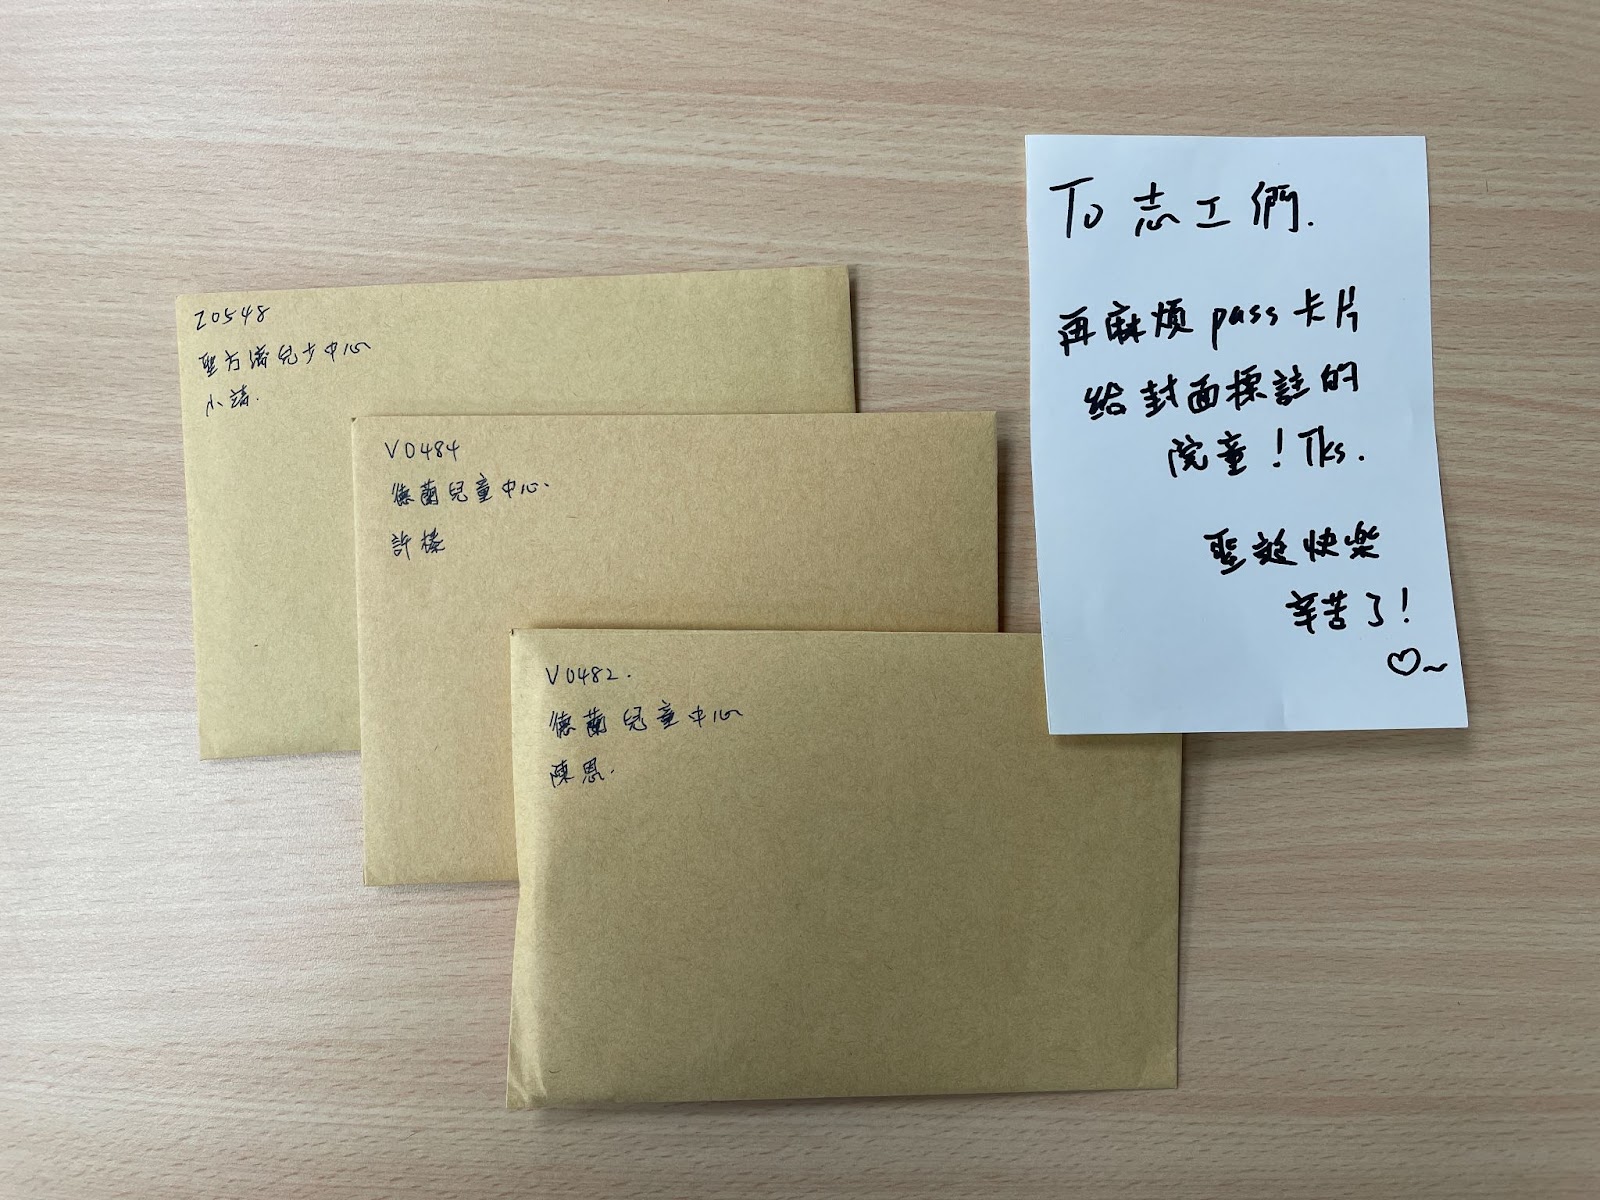 Z0548
聖方濟兒少中心
小靖.
V0484
德蘭兒童中心.
許榛
V0482.
德蘭兒童中心
陳恩.
To 志工們.
再麻煩 pass 卡片
給封面標註的
院童！Tks.
聖誕快樂
辛苦了！
♡~